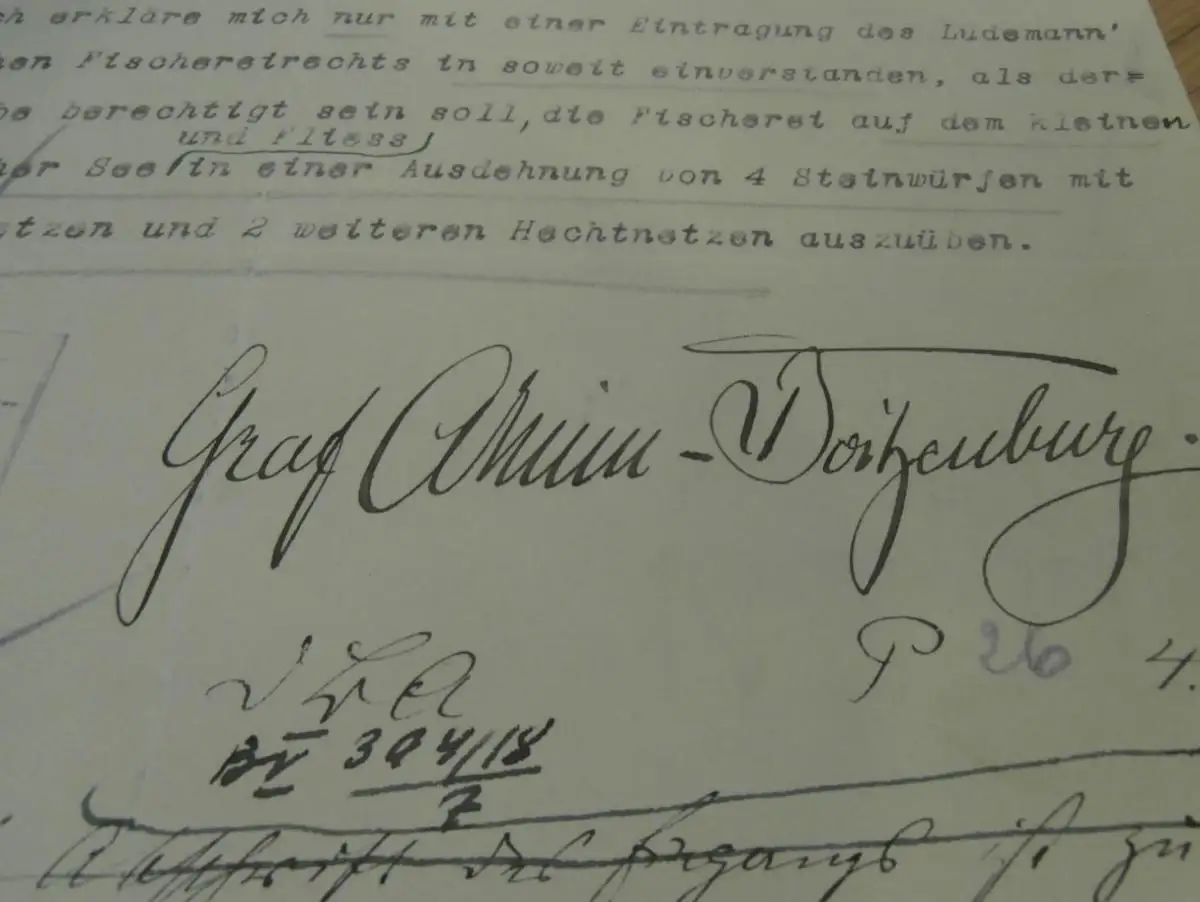 ch erkläre mich nur mit einer Eintragung des Ludemann'
hen Fischereirechts in soweit einverstanden, als der=
be berechtigt sein soll, die Fischerei auf dem kleinen
und Fliess
her See in einer Ausdehnung von 4 Steinwürfen mit
etzen und 2 weiteren Hechtnetzen auszuüben.
Graf Arnim-Boitzenburg.
P 26 4.
BV 304/18
7
Abschrift des ist zu